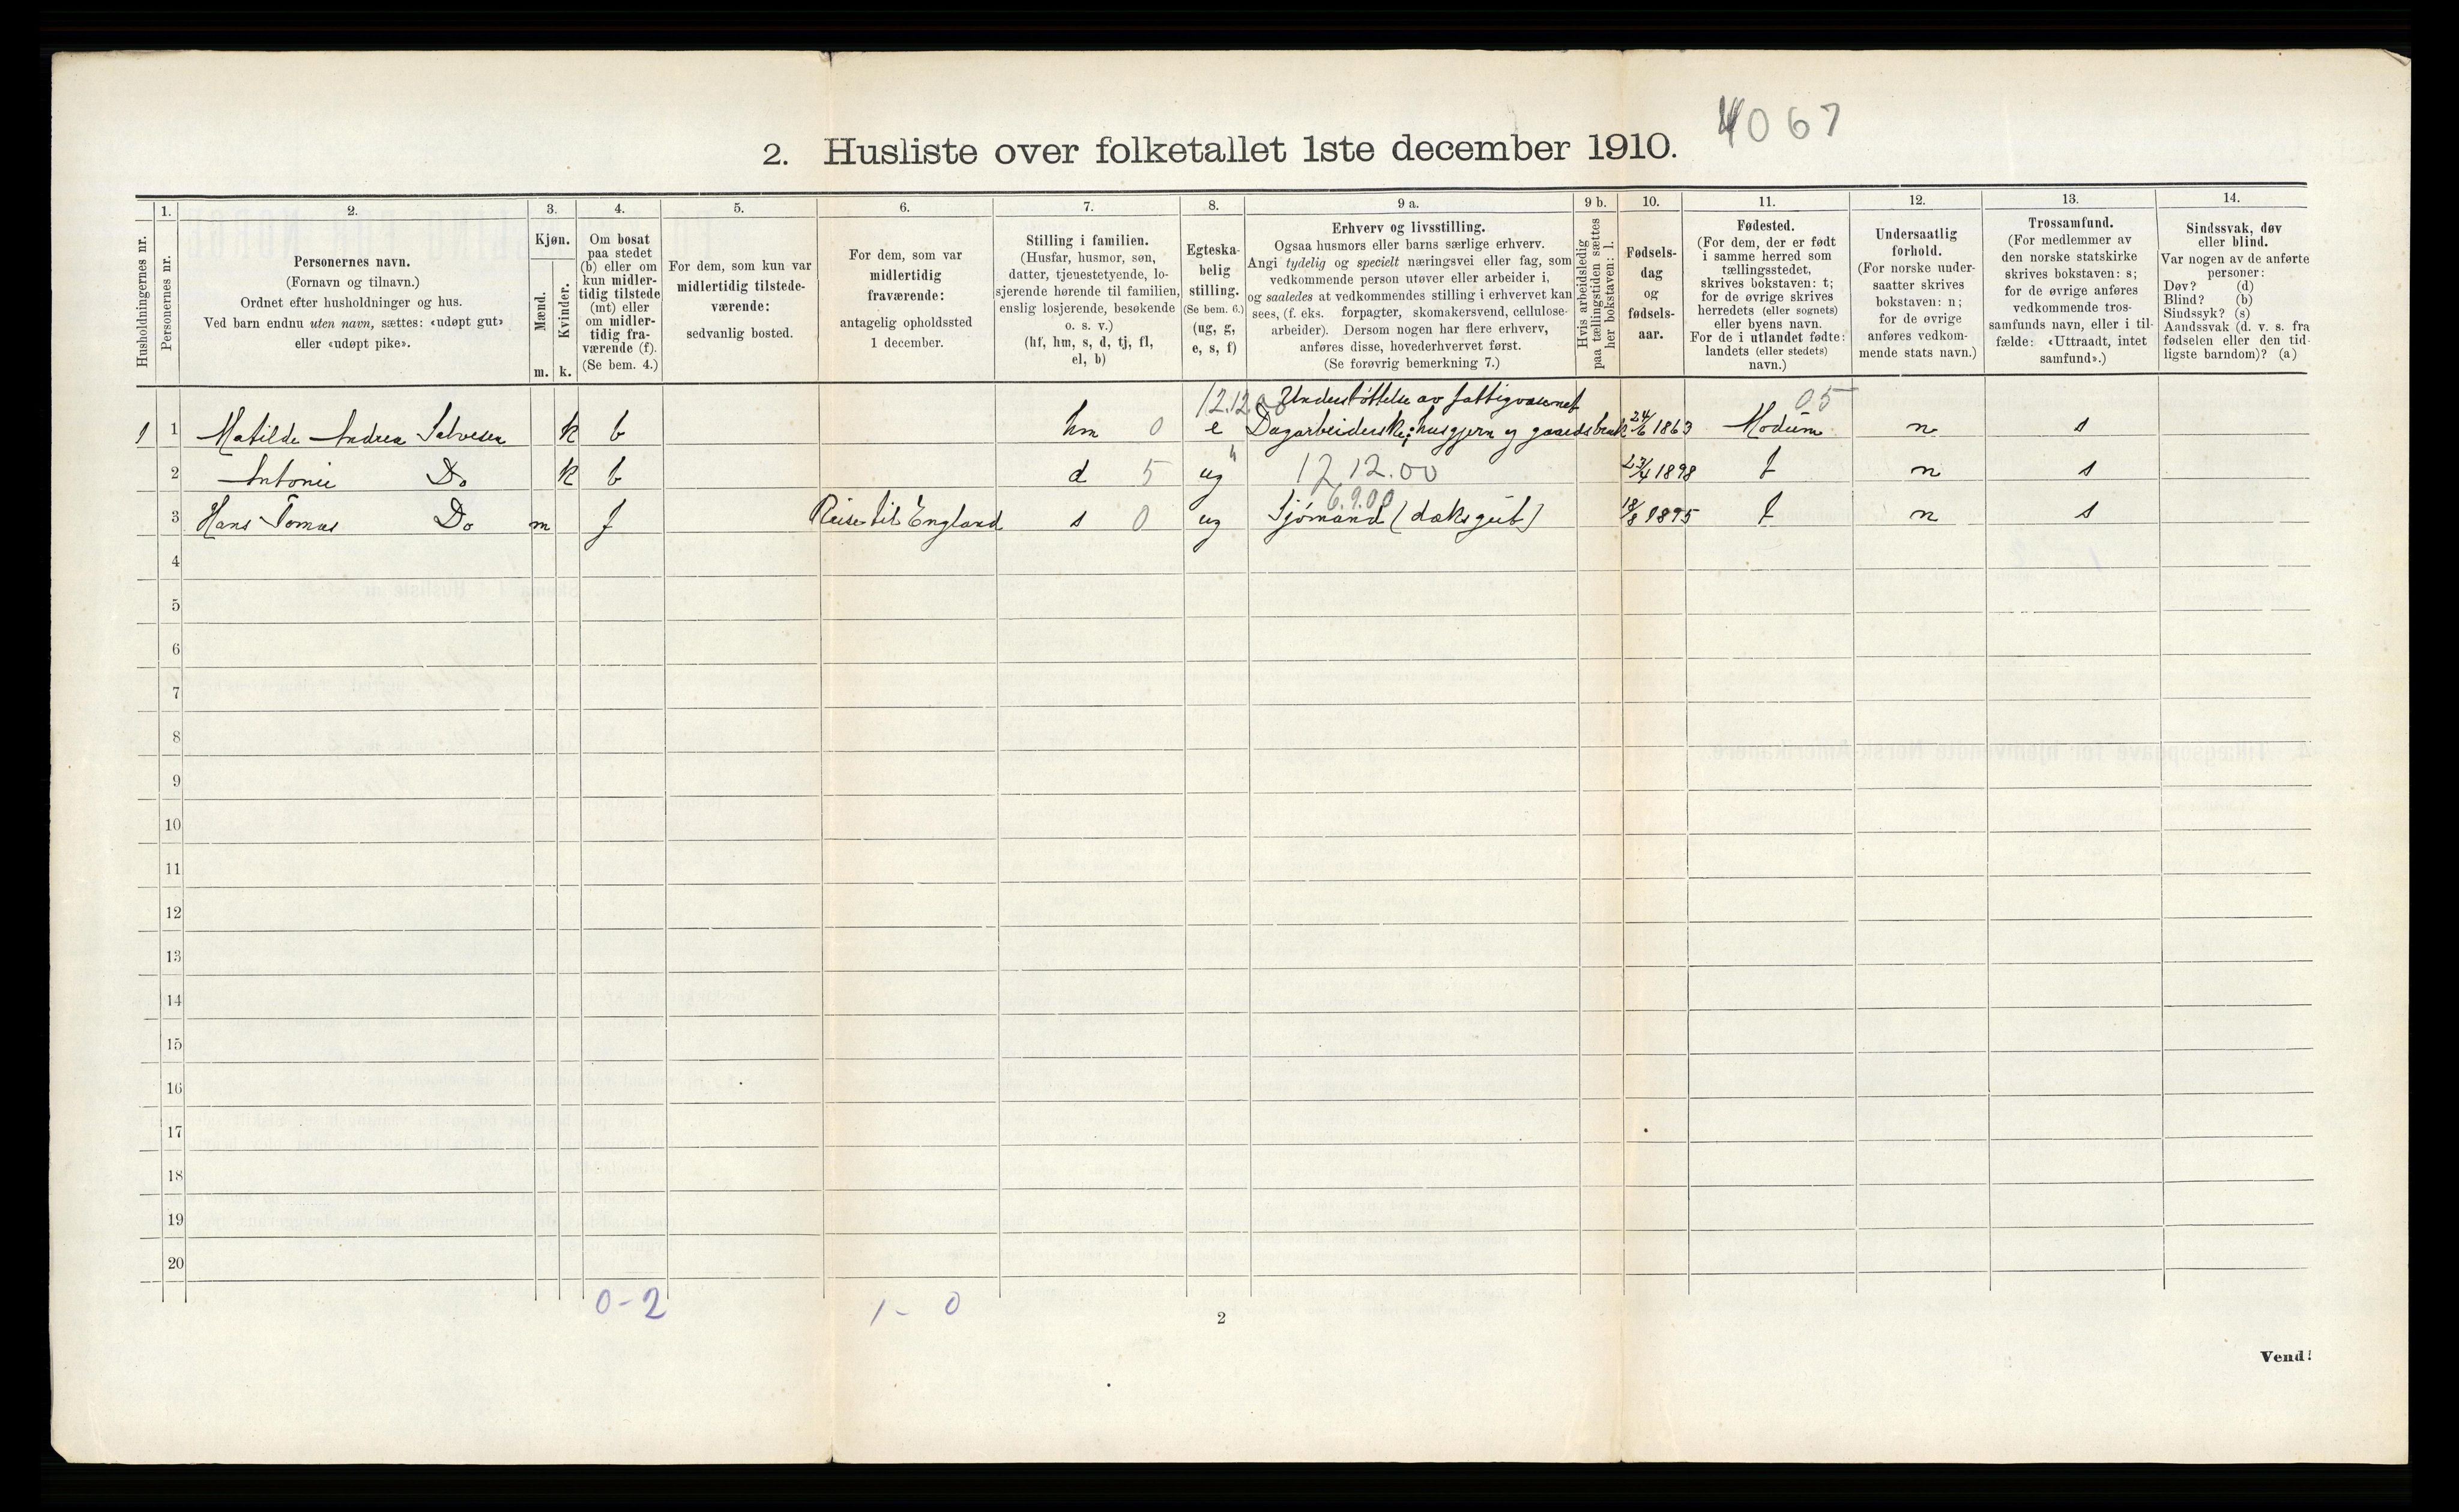 4067
2. Husliste over folketallet 1ste december 1910.
Husholdningernes nr.
1.
Personernes nr.
2.
Personernes navn.
(Fornavn og tilnavn.)
Ordnet efter husholdninger og hus.
Ved barn endnu uten navn, sættes: «udøpt gut»
eller «udøpt pike».
3.
Kjøn.
Mænd.
Kvinder.
m. k.
4.
Om bosat
paa stedet
(b) eller om
kun midler-
tidig tilstede
(mt) eller
om midler-
tidig fra-
værende (f).
(Se bem. 4.)
5.
For dem, som kun var
midlertidig tilstede-
værende:
sedvanlig bosted.
6.
For dem, som var
midlertidig
fraværende:
antagelig opholdssted
1 december.
7.
Stilling i familien.
(Husfar, husmor, søn,
datter, tjenestetyende, lo-
sjerende hørende til familien,
enslig losjerende, besøkende
o. s. v.)
(hf, hm, s, d, tj, fl,
el, b)
8.
Egteska-
belig
stilling.
(Se bem. 6.)
(ug, g,
e, s, f)
9 a.
Erhverv og livsstilling.
Ogsaa husmors eller barns særlige erhverv.
Angi tydelig og specielt næringsvei eller fag, som
vedkommende person utøver eller arbeider i,
og saaledes at vedkommendes stilling i erhvervet kan
sees, (f. eks. forpagter, skomakersvend, cellulose-
arbeider). Dersom nogen har flere erhverv,
anføres disse, hovederhvervet først.
(Se forøvrig bemerkning 7.)
9 b.
Hvis arbeidsledig
paa tællingstiden sættes
her bokstaven: l.
10.
Fødsels-
dag
og
fødsels-
aar.
11.
Fødested.
(For dem, der er født
i samme herred som
tællingsstedet,
skrives bokstaven: t;
for de øvrige skrives
herredets (eller sognets)
eller byens navn.
For de i utlandet fødte:
landets (eller stedets)
navn.)
12.
Undersaatlig
forhold.
(For norske under-
saatter skrives
bokstaven: n;
for de øvrige
anføres vedkom-
mende stats navn.)
13.
Trossamfund.
(For medlemmer av
den norske statskirke
skrives bokstaven: s;
for de øvrige anføres
vedkommende tros-
samfunds navn, eller i til-
fælde: «Uttraadt, intet
samfund».)
14.
Sindssvak, døv
eller blind.
Var nogen av de anførte
personer:
Døv? (d)
Blind? (b)
Sindssyk? (s)
Aandssvak (d. v. s. fra
fødselen eller den tid-
ligste barndom)? (a)
12.12. Understøttelse av fattigvæsenet 05
1 1 Matilde Andrea Salvesen k b hm 0 e Dagarbeiderske; husgjern og gaardsbruk 24/6 1863 Modum n s
2 Antonie Do k b d 5 ug 12.12.00 23/4 1898 t n s
6.9.00
3 Hans Tomas Do m f Reise til England s 0 ug Sjømand (dæksgut) 18/8 1895 t n s
4
5
6
7
8
9
10
11
12
13
14
15
16
17
18
19
20
0-2 1-0
2
Vend!